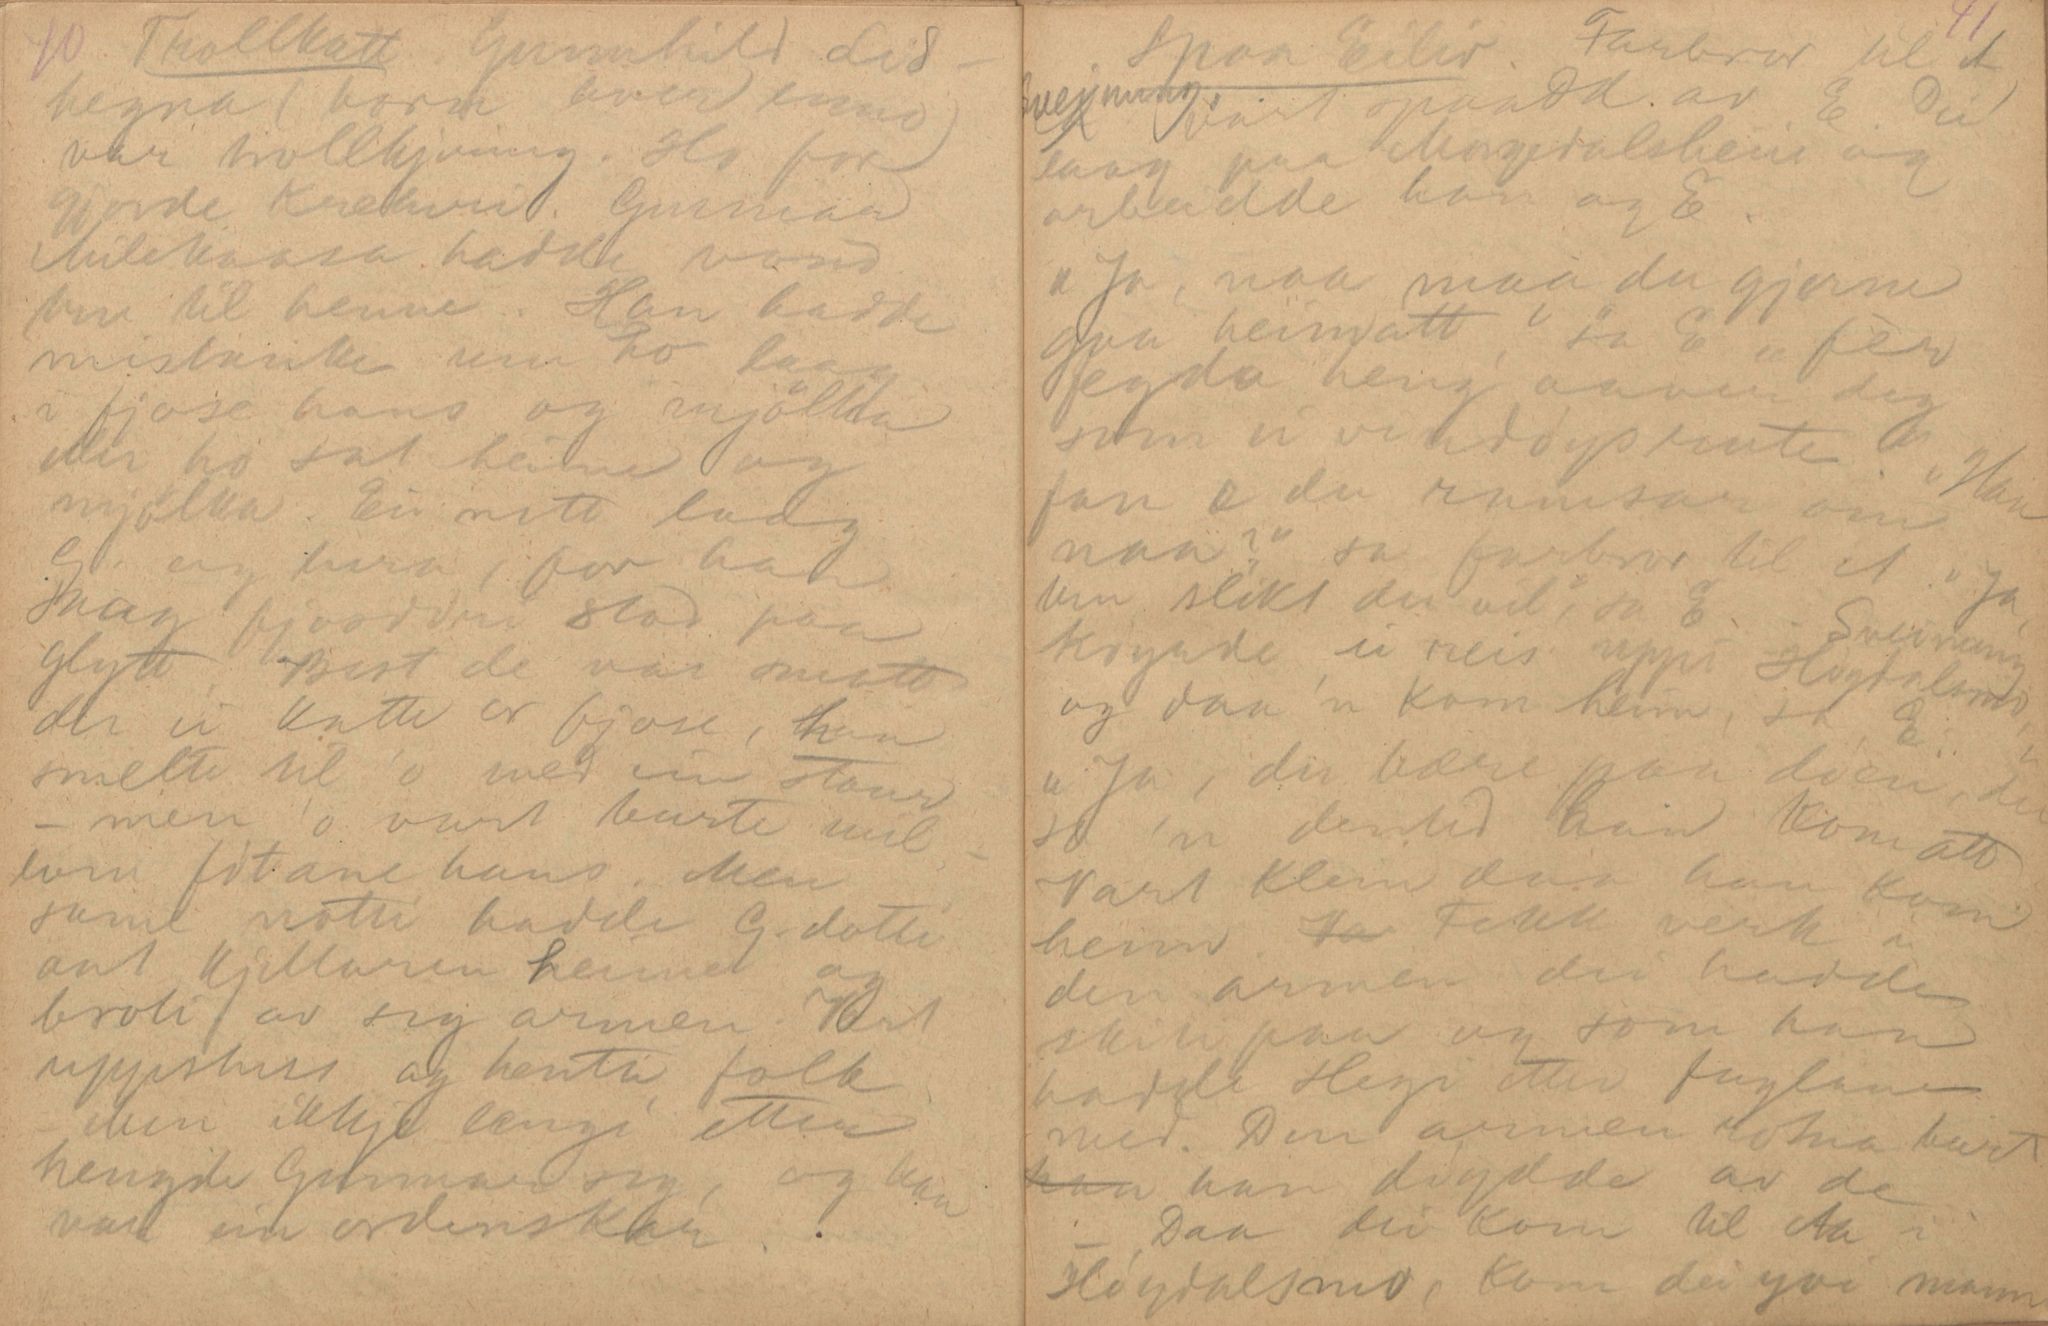 40 Trollkatt. Gunnhild Lid-
hegna (born lever enno)
var trollkjøning. Ho for
gjorde Gunnar
hadde vore
til henne. Han hadde
mistanke um ho laag
i fjose hans og mjölka
der ho sat heime og
mjölka. Ei nott laag
G. og lura, for han
saag fjosdøri stod paa
glytt. Best de var smatt
der ei katte or fjose, han
smelte til 'o med ein staur
- men 'o vart burte mil-
lom føtane hans. Men
same notti hadde G. dotti
out kjellaren heime og
broti av seg armen. Vart
uppstuss og hente folk
- Men ikkje lengi etter
hengde Gunnar seg, og han
var ein ordenskar.
41
Spaa Eiliv. Farbror til A
Sveinung vart spaadd av E. Dei
laag paa Morgedalsheii og
arbeidde han og E.
"Ja, naa maa du gjerne
gaa heimatt," sa E "fer
fegda heng aaver deg
som ei vindøysrute." "Haa
fan e du ramsar om
naa?" sa farbror til A. "Ja,
um slikt du vil", sa E. Sveinung
køyrde ei reis uppi Høydalsmo,
og daa 'n kom heim, sa E.
"Ja, du bære paa døen, du"
sa 'n dentid han kom att
Vart klein daa han kom
heim. Fekk verk i
den armen dei hadde
skiti paa og som han
hadde slegi etter fuglane
med. Den armen rotna burt
han han døydde av de
- Daa dei kom til Aa i
Høydalsmo, kom dei yvi mann